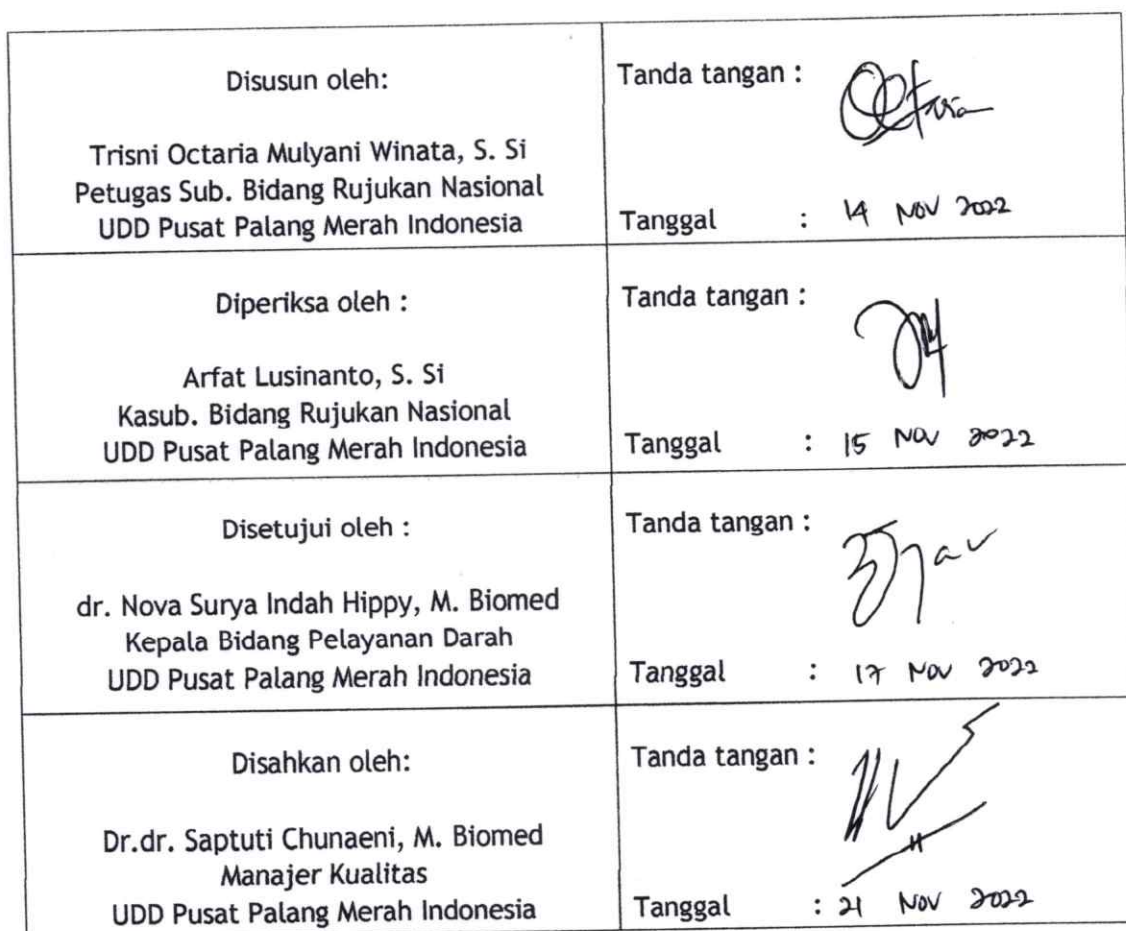 Disusun oleh:
Trisni Octaria Mulyani Winata, S. Si
Petugas Sub. Bidang Rujukan Nasional
UDD Pusat Palang Merah Indonesia
Tanda tangan :
Tanggal : 14 NOV 2022
Diperiksa oleh :
Arfat Lusinanto, S. Si
Kasub. Bidang Rujukan Nasional
UDD Pusat Palang Merah Indonesia
Tanda tangan :
Tanggal : 15 NOV 2022
Disetujui oleh :
dr. Nova Surya Indah Hippy, M. Biomed
Kepala Bidang Pelayanan Darah
UDD Pusat Palang Merah Indonesia
Tanda tangan :
Tanggal : 17 Nov 2022
Disahkan oleh:
Dr.dr. Saptuti Chunaeni, M. Biomed
Manajer Kualitas
UDD Pusat Palang Merah Indonesia
Tanda tangan :
Tanggal : 21 Nov 2022